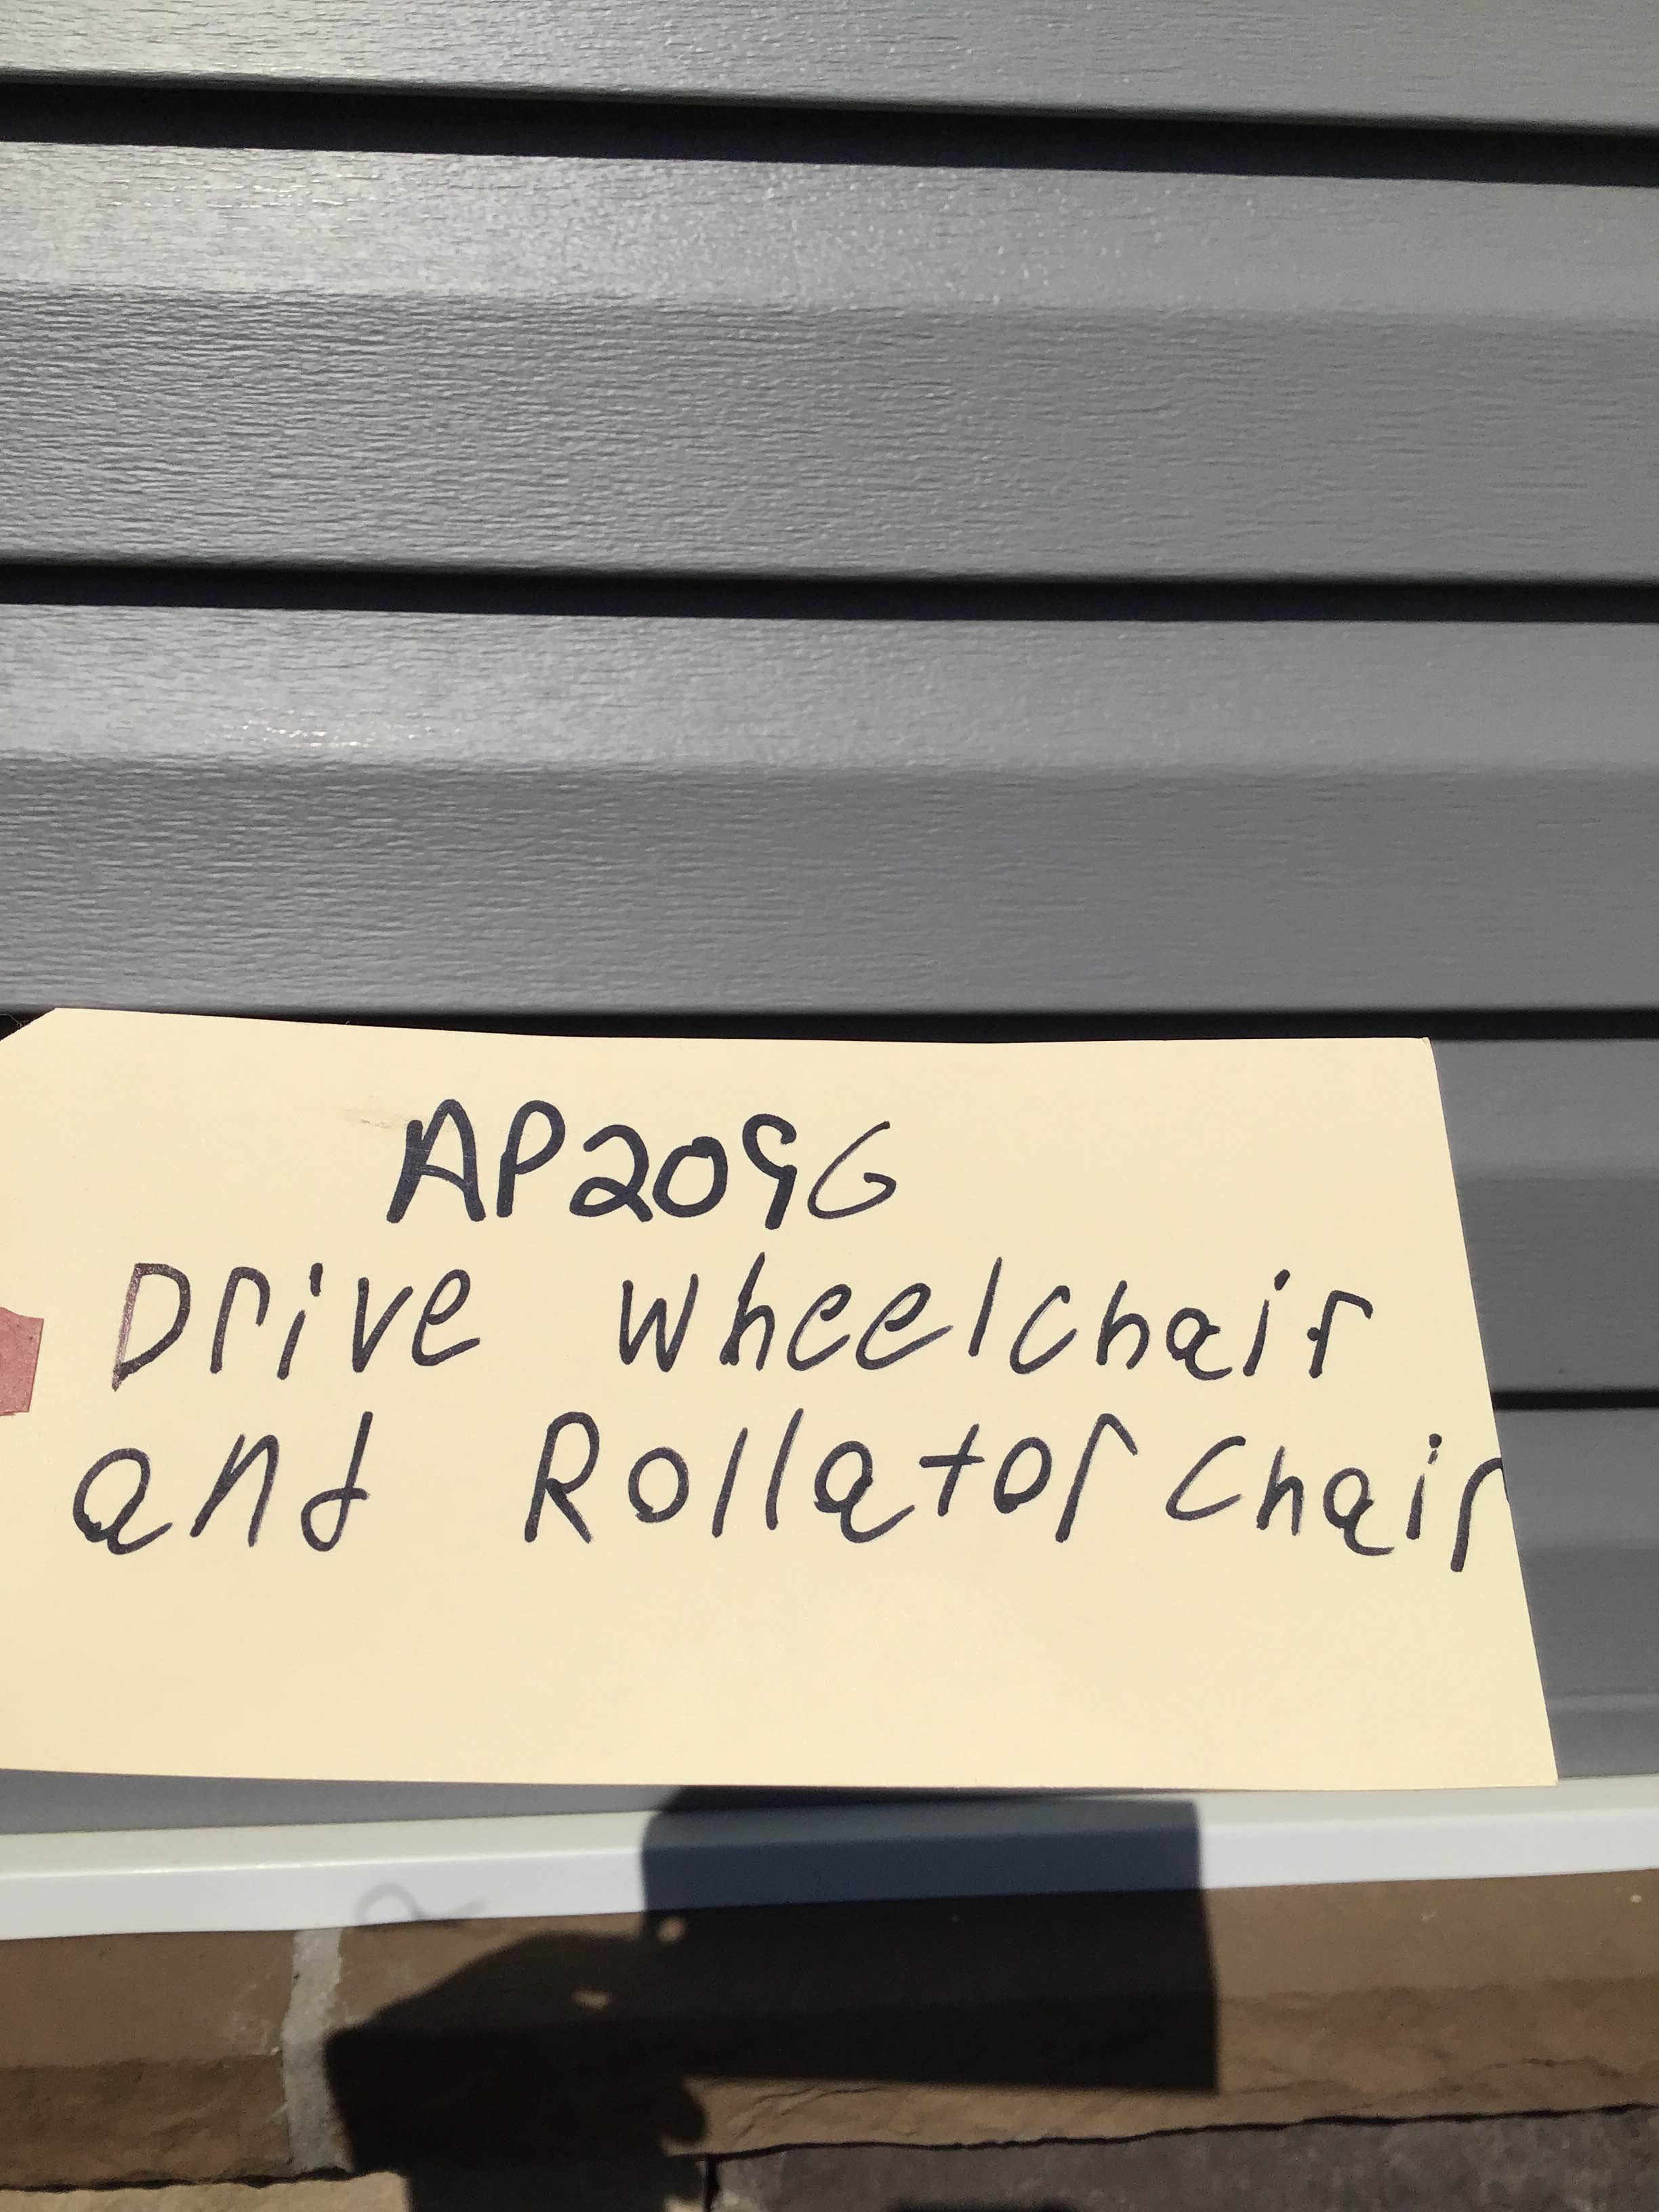 AP209G
Drive wheelchair
and Rollator Chair